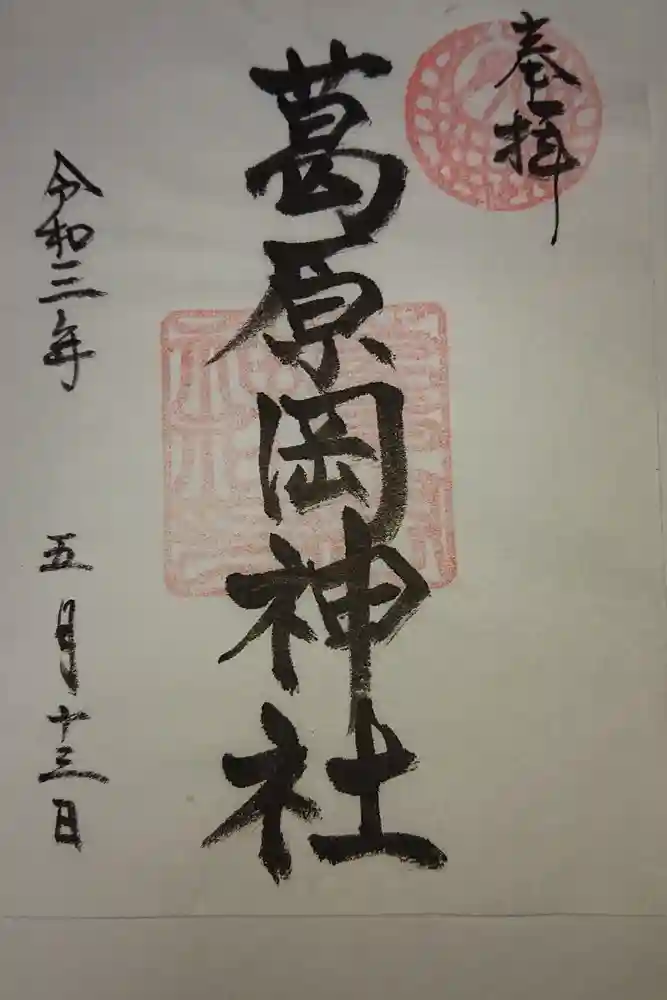 奉拝
葛原岡神社
令和三年 五月十三日